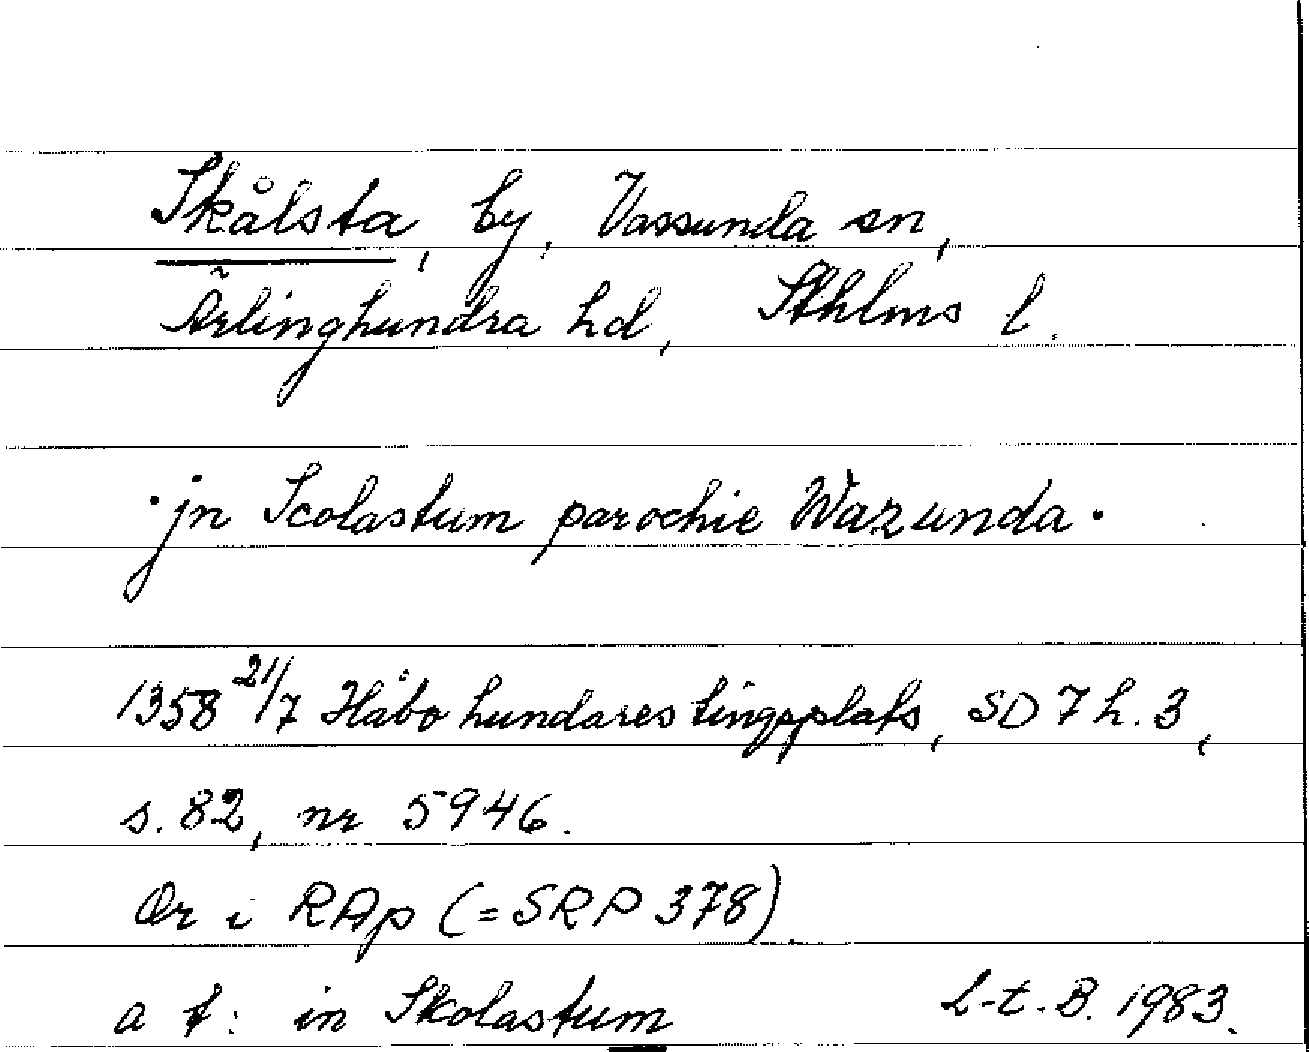 Skålsta, by, Vassunda sn,
Ärlinghundra hd, Sthlms l.
·jn Scolastum parochie Wazunda·
1358 21/7 Håbo hundares tingsplats, SD 7 h. 3,
s. 82, nr 5946.
Or i RAp (=SRP 378)
a t: in Skolastum L-t. B. 1983.